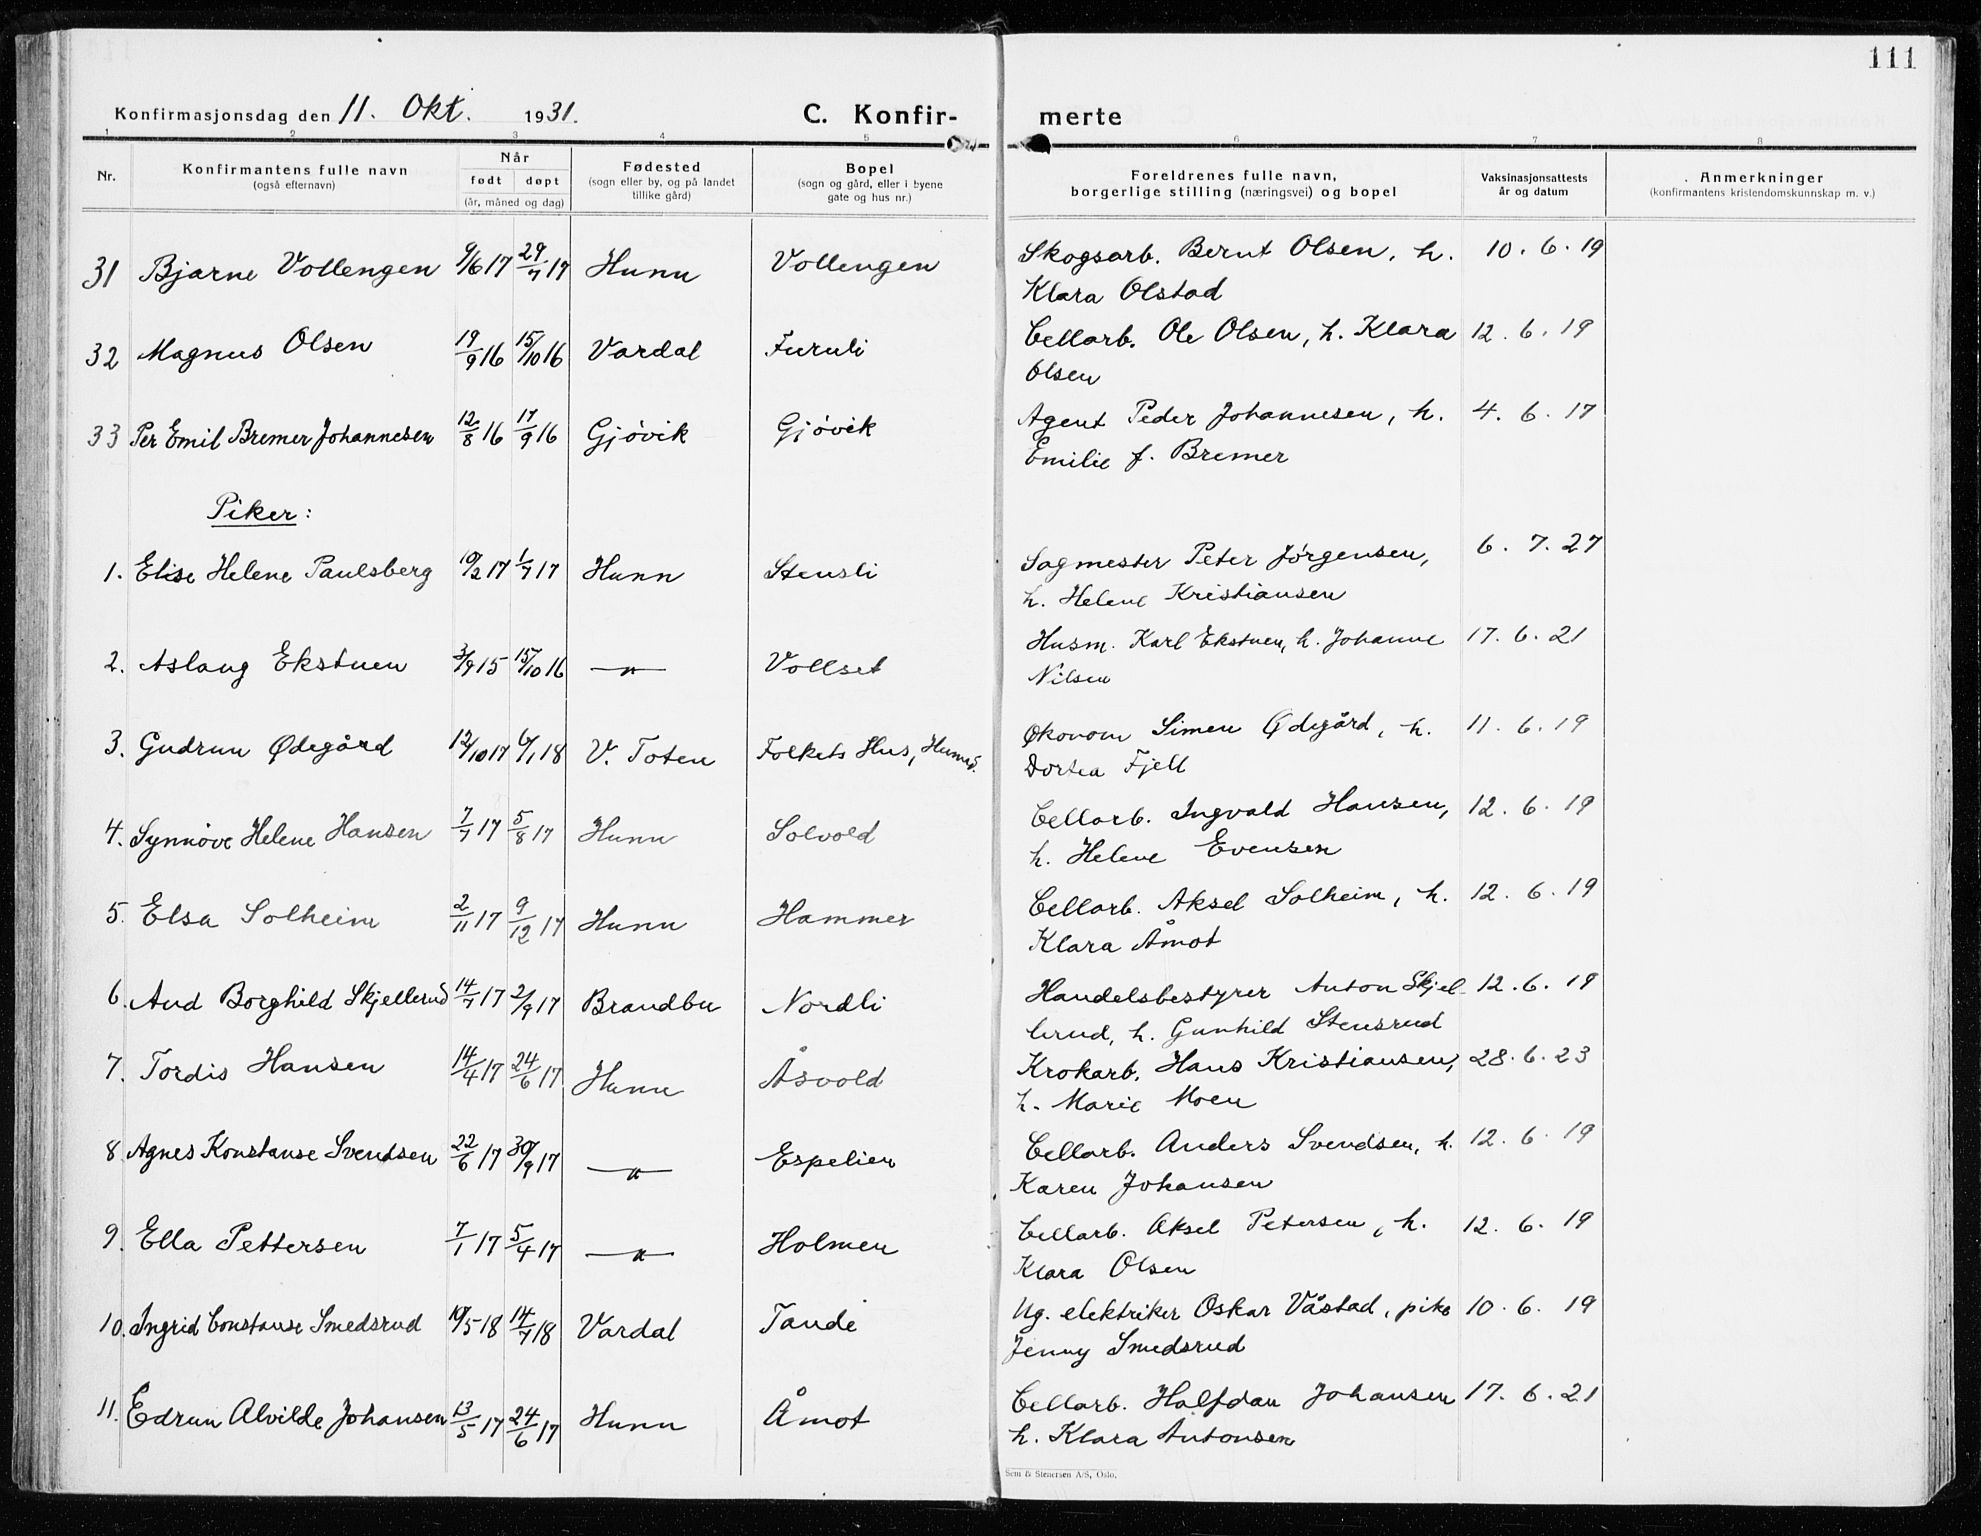 111
Konfirmasjonsdag den 11. Okt. 1931.
C. Konfir-
merte
1 2 3 4 5 6 7 8
Nr.
Konfirmantens fulle navn
(også efternavn)
Når
født døpt
(år, måned og dag)
Fødested
(sogn eller by, og på landet
tillike gård)
Bopel
(sogn og gård, eller i byene
gate og hus nr.)
Foreldrenes fulle navn,
borgerlige stilling (næringsvei) og bopel
Vaksinasjonsattests
år og datum
Anmerkninger
(konfirmantens kristendomskunnskap m. v.)
31 Bjarne Vollengen 9/6 17 29/7 17 Hunn Vollengen Skogsarb. Bernt Olsen, h. 10. 6. 19
Klara Olstad
32 Magnus Olsen 19/9 16 15/10 16 Vardal Furuli Cellarb. Ole Olsen, h. Klara 12. 6. 19
Olsen
33 Per Emil Bremer Johannesen 12/8 16 17/9 16 Gjövik Gjövik Agent Peder Johannesen, h. 4. 6. 17
Emilie f. Bremer
Piker:
1. Elise Helene Paulsberg 10/2 17 1/7 17 Hunn Stensli Sagmester Peter Jørgensen, 6. 7. 27
h. Helene Kristiansen
2. Aslaug Ekstuen 3/9 15 15/10 16 — " — Vollset Husm. Karl Ekstuen, h. Johanne 17. 6. 21
Nilsen
3. Gudrun Ødegård 12/10 17 6/1 18 V. Toten Folkets Hus, Hunnd. Økonom Simen Ødegård, h. 11. 6. 19
Dortea Fjell
4. Synnöve Helene Hansen 7/7 17 5/8 17 Hunn Solvold Cellarb. Ingvald Hansen, 12. 6. 19
h. Helene Evensen
5. Elsa Solheim 2/11 17 9/12 17 Hunn Hammer Cellarb. Aksel Solheim, h. 12. 6. 19
Klara Åmot
6. Aud Borghild Skjellerud 14/7 17 2/9 17 Brandbu Nordli Handelsbestyrer Anton Skjel- 12. 6. 19
lerud, h. Gunhild Stensrud
7. Tordis Hansen 14/4 17 24/6 17 Hunn Åsvold Krokarb. Hans Kristiansen, 28. 6. 23
h. Marie Moen
8 Agnes Konstanse Svendsen 22/6 17 30/9 17 — " — Espelien Cellarb. Anders Svendsen, h. 12. 6. 19
Karen Johansen
9. Ella Pettersen 7/1 17 5/4 17 — " — Holmen Cellarb. Aksel Petersen, h. 12. 6. 19
Klara Olsen
10. Ingrid Constanse Smedsrud 10/5 18 14/7 18 Vardal Tande Ug. elektriker Oskar Våstad, pike 10. 6. 19
Jenny Smedsrud
11. Edrun Alvilde Johansen 13/5 17 24/6 17 Hunn Åmot Cellarb. Halfdan Johansen 17. 6. 21
h. Klara Antonsen
Sem & Stenersen A/S, Oslo.